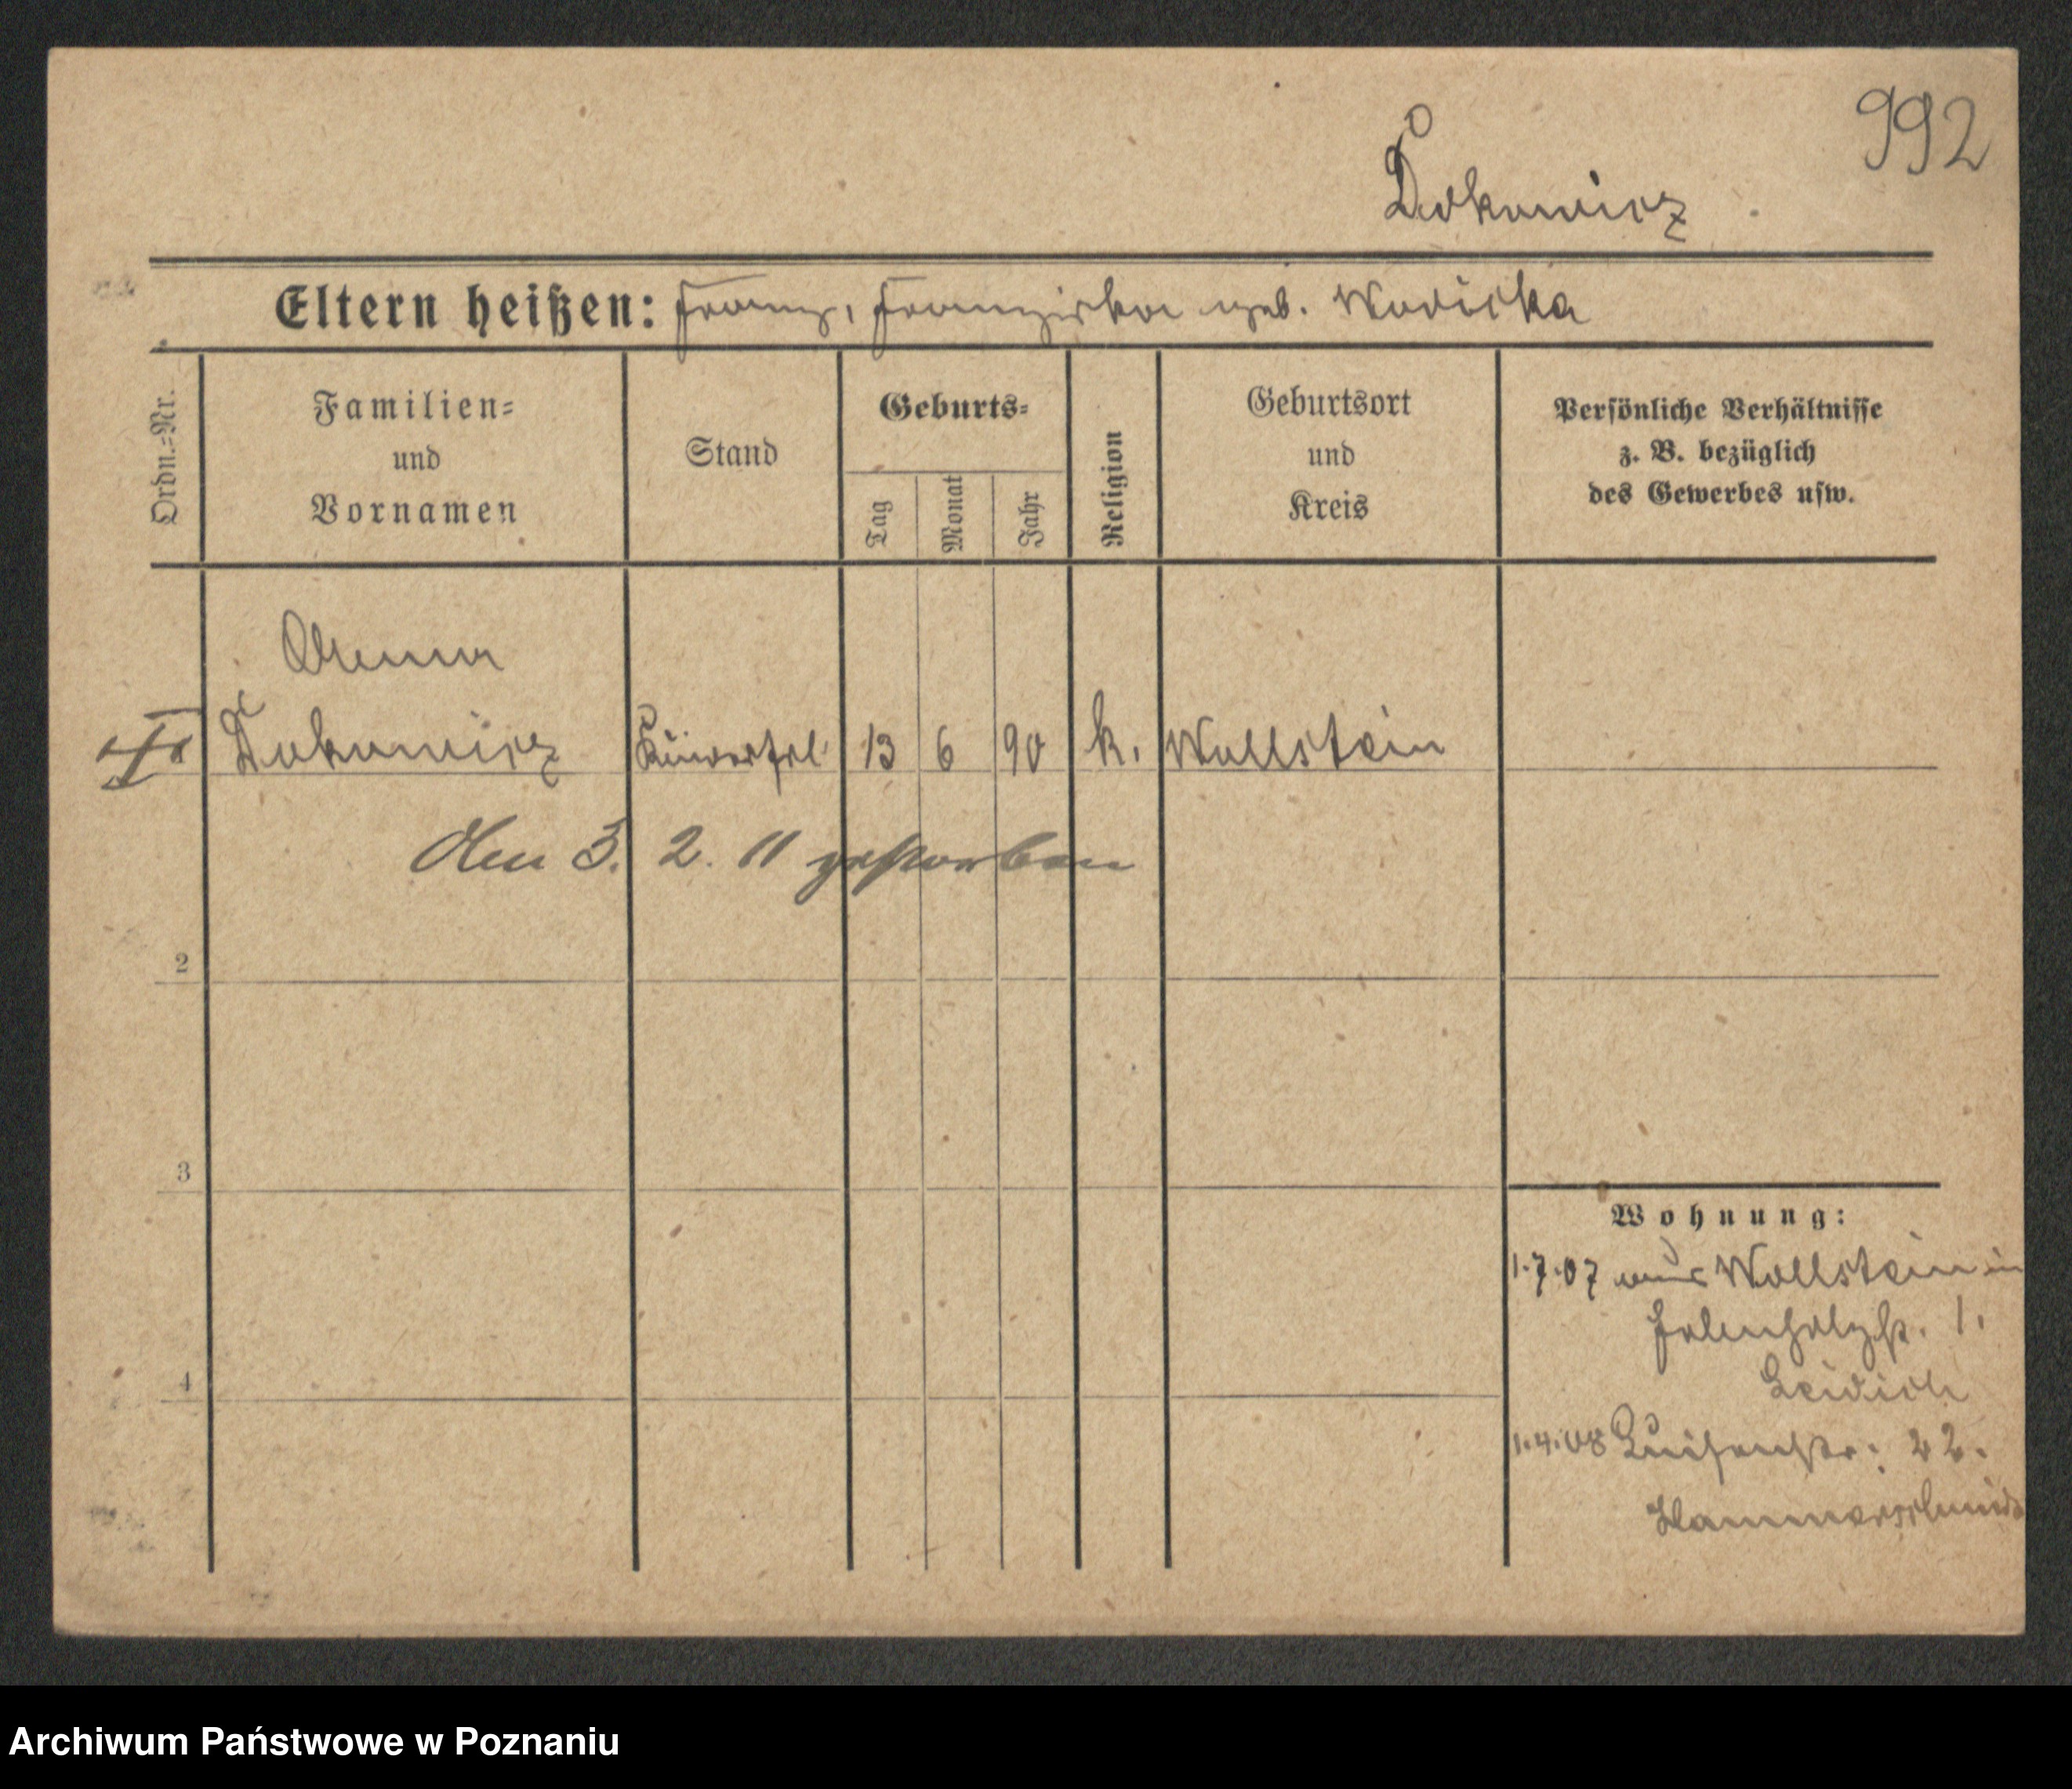 992
Dokowicz
Eltern heißen: Franz, Franziska geb. Wodicka
Ordn.-Nr.
Familien-
und
Vornamen
Stand
Geburts-
Tag
Monat
Jahr
Religion
Geburtsort
und
Kreis
Persönliche Verhältnisse
z. B. bezüglich
des Gewerbes usw.
Anna
Dokowicz
13 6 90 k. Wollstein
Den 3. 2. 11 gestorben
2
3
4
Wohnung:
1.7.07 aus Wollstein in
1.
1.4.08 Luisenstr. 22.
Hammerschmidt
Archiwum Państwowe w Poznaniu